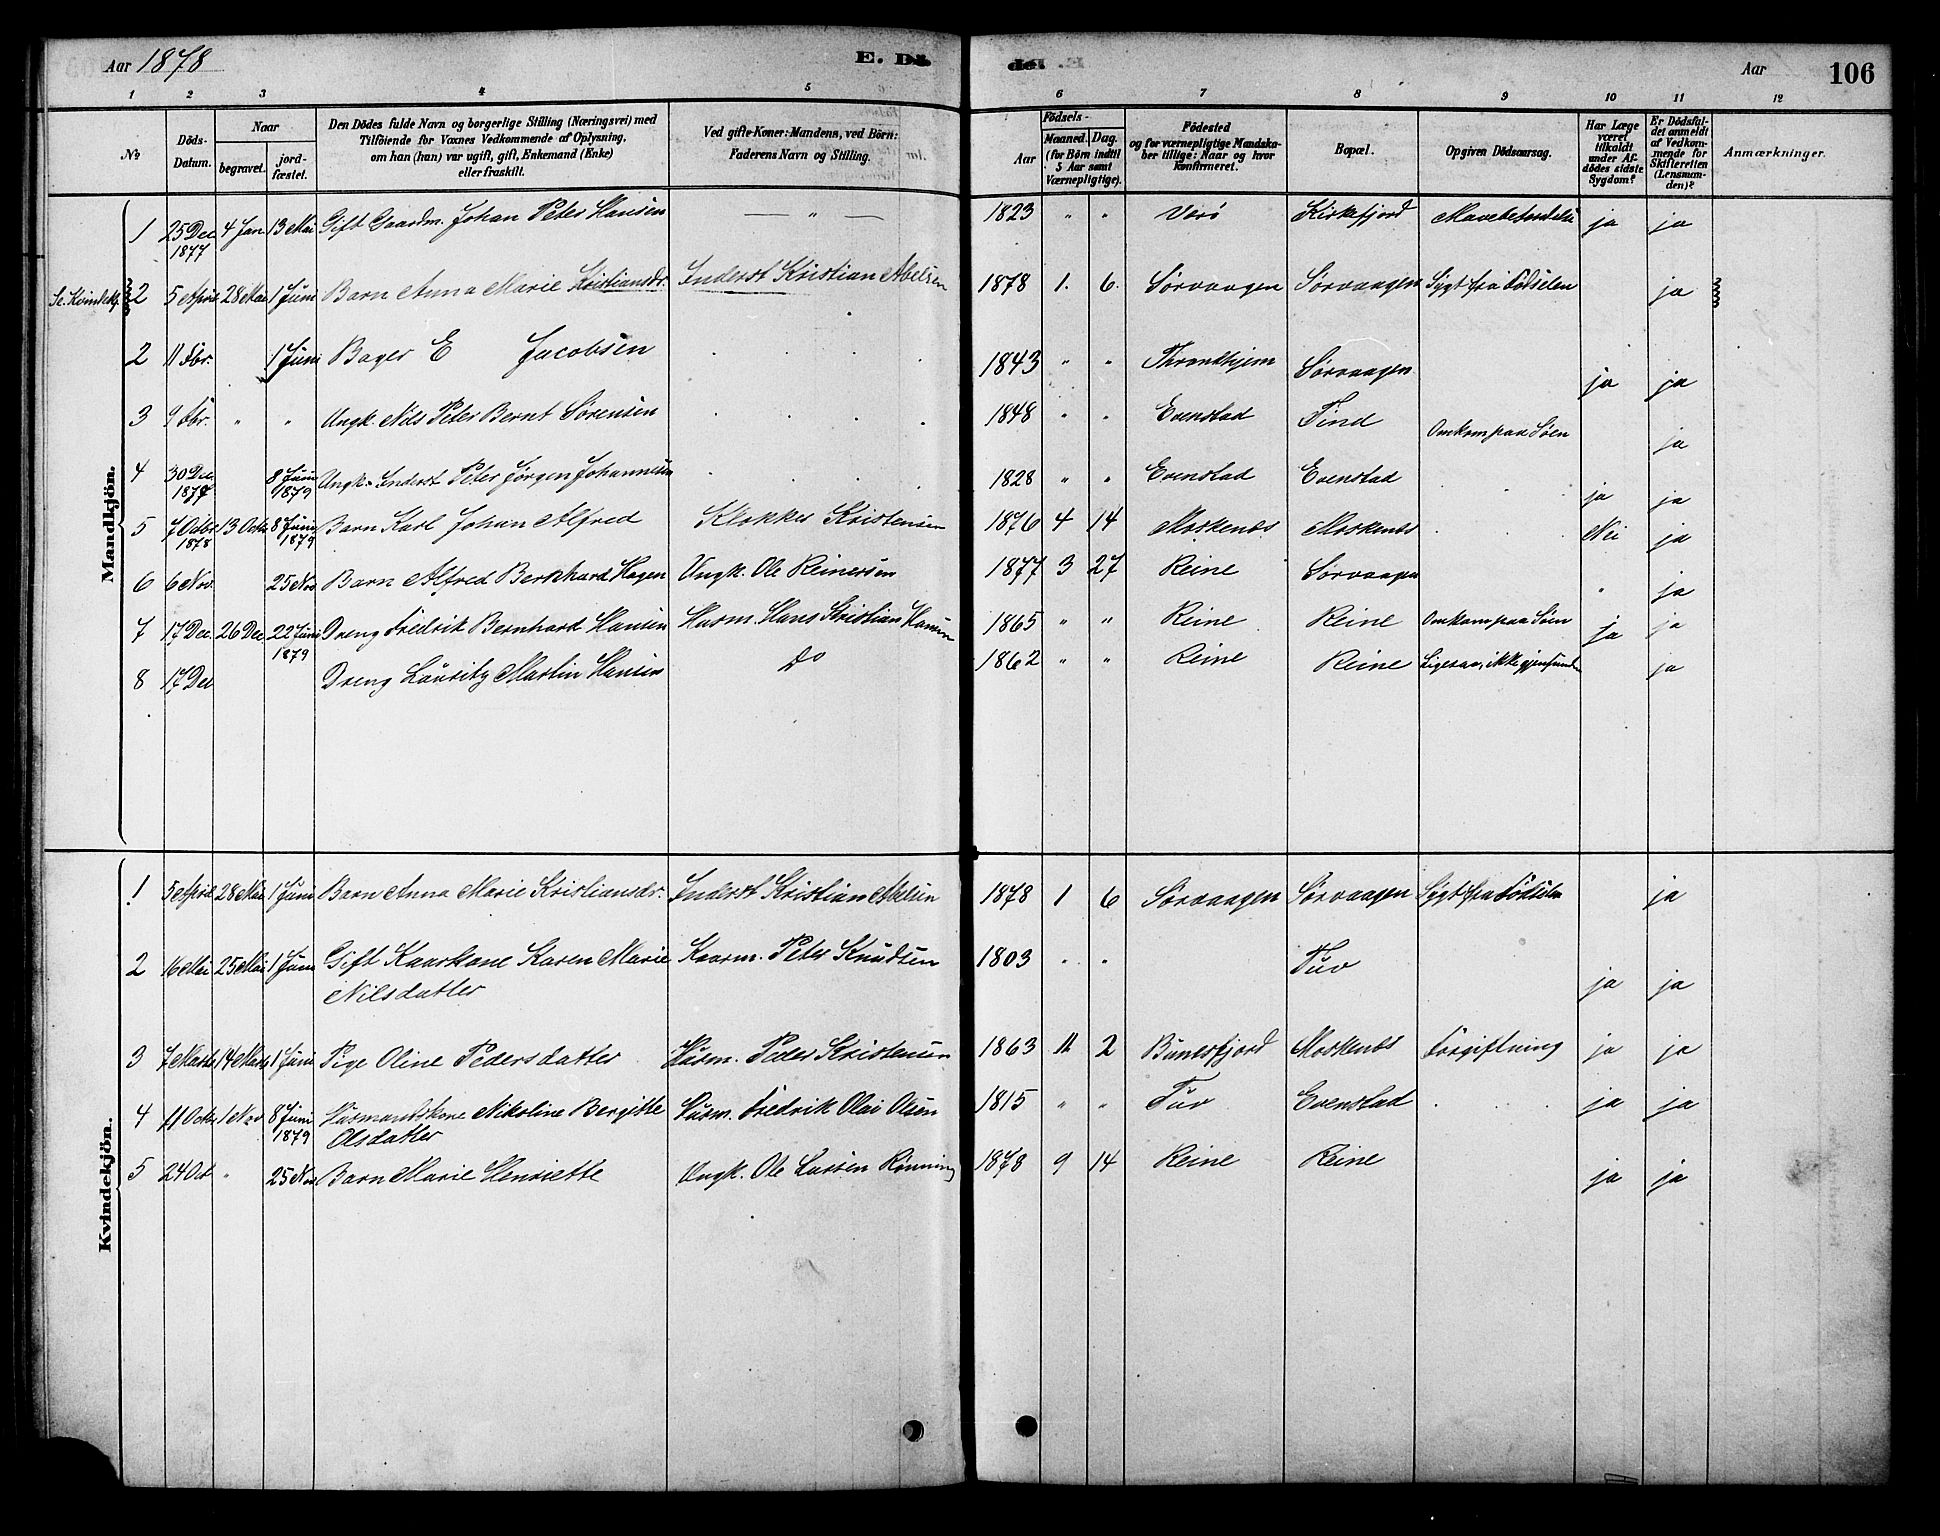 Aar 1878 E. Dö
del .E Aar 106
1 2 3 4 5 6 7 8 9 10 11 12
No
Döds-Datum.
Naar
begravet.
jord-fæstet.
Den Dödes fulde Navn og borgerlige Stilling (Næringsvei) med
Tilföiende for Voxnes Vedkommende af Oplysning,
om han (hun) var ugift, gift, Enkemand (Enke)
eller fraskilt.
Ved gifte Koner: Mandens, ved Börn:
Faderens Navn og Stilling.
Födsels-
Aar
Maaned. Dag.
(for Börn indtil
5 Aar samt
Værnepligtige).
Födested
og for værnepligtige Mandska-
ber tillige: Naar og hvor
konfirmeret.
Bopæl.
Opgiven Dödsaarsag.
Har Læge
været
tilkaldt
under Af-
dödes sidste
Sygdom?
Er Dödsfal-
det anmeldt
af Vedkom-
mende for
Skifteretten
(Lensman-
den)?
Anmærkninger.
Mandkjön.
1 25 Dec 1877 4 Jan 13 Mai Gift Gaardm. Johan Peter Hansen — " — 1823 " " Værö Kirkefjord ja ja
Se Kvindekj. 2 5 April 28 Mai 1 Juni Barn Anna Marie Kristiansdr. Inderst Kristian Abelsen 1878 1. 6. Sørvaagen Sørvaagen Sygt fra Fødselen ja
2 11 Fbr. 1 Juni Bager E Jacobsen 1843 " " Throndhjem Sørvaagen ja ja
3 9 Fbr. " " Ungk. Nils Peter Bernt Sørensen 1848 " " Evenstad Tind Omkom paa Søen ja
4 30 Dec. 1877 8 Juni 1879 Ungk. Inderst Peter Jørgen Johannesen 1828 " " Evenstad Evenstad ja ja
5 7 Octbr 1878 13 Octb 8 Juni 1879 Barn Karl Johan Alfred Klokker Kristensen 1876 4 14 Moskenes Moskenes Nei ja
6 6 Nov. 25 Nov Barn Alfred Bernhard Hagen Ungk. Ole Reinersen 1877 3 27 Reine Sørvaagen " ja
7 17 Dec. 26 Dec 22 Juni 1879 Dreng Fredrik Bernhard Hansen Husm. Hans Kristian Hansen 1865 " " Reine Reine Omkom paa Søen ja ja
8 17 Dec Dreng Lauritz Martin Hansen Do 1862 " " Reine Reine Ligesaa, ikke gjenfunden ja
Kvindekjön.
1 5 April 28 Mai 1 Juni Barn Anna Marie Kristiansdr. Inderst Kristian Abelsen 1878 1 6 Sørvaagen Sørvaagen Sygt fra Fødselen ja
2 16 Mai 25 Mai 1 Juni Gift Kaarkone Karen Marie Kaarm. Peter Knudsen 1803 " " Tuv ja ja
Nilsdatter
3 7 Marts 14 Marts 1 Juni Pige Oline Pedersdatter Husm. Peder Kristensen 1863 11 2 Bunesfjord Moskenes Forgiftning ja ja
4 11 Octb 1 Nov 8 Juni 1879 Husmandskone Nikoline Bergitte Husm. Fredrik Olai Olsen 1815 " " Tuv Evenstad ja ja
Olsdatter
5 24 Oct " 25 Nov Barn Marie Henriette Ungk. Ole Larsen Rønning 1878 9 14 Reine Reine ja ja